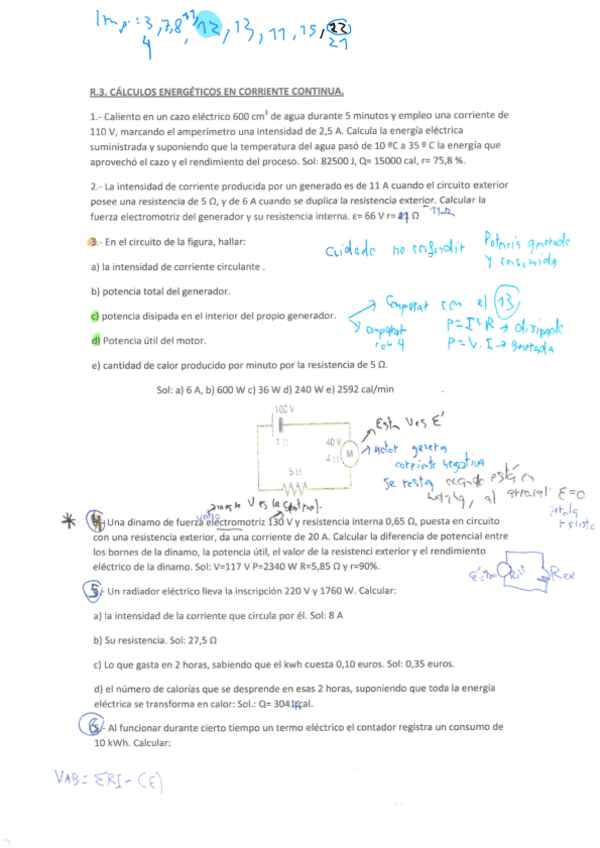 Imp: 3, 7, 8, 12, 13, 11, 15, 22
4
21
R.3. CÁLCULOS ENERGÉTICOS EN CORRIENTE CONTINUA.
1.- Caliento en un cazo eléctrico 600 cm³ de agua durante 5 minutos y empleo una corriente de
110 V, marcando el amperímetro una intensidad de 2,5 A. Calcula la energía eléctrica
suministrada y suponiendo que la temperatura del agua pasó de 10 ºC a 35 º C la energía que
aprovechó el cazo y el rendimiento del proceso. Sol: 82500 J, Q= 15000 cal, r= 75,8 %.
2.- La intensidad de corriente producida por un generado es de 11 A cuando el circuito exterior
posee una resistencia de 5 Ω, y de 6 A cuando se duplica la resistencia exterior. Calcular la
fuerza electromotriz del generador y su resistencia interna. ε= 66 V r= Ω
3.- En el circuito de la figura, hallar:
Cuidado no confundir Potencia generada
y consumida
a) la intensidad de corriente circulante .
b) potencia total del generador.
c) potencia disipada en el interior del propio generador.
Comparar con el 13
comparar
P=I²R → disipada
d) Potencia útil del motor.
P=V.I → generada
e) cantidad de calor producido por minuto por la resistencia de 5 Ω.
Sol: a) 6 A, b) 600 W c) 36 W d) 240 W e) 2592 cal/min
100 V
1 Ω
40 V
4 Ω
M
5 Ω
Esta V es E'
Motor genera
corriente negativa
se resta cuando está en
marcha, al arrancar E=0
4.- Una dinamo de fuerza electromotriz 130 V y resistencia interna 0,65 Ω, puesta en circuito
con una resistencia exterior, da una corriente de 20 A. Calcular la diferencia de potencial entre
los bornes de la dinamo, la potencia útil, el valor de la resistenci exterior y el rendimiento
eléctrico de la dinamo. Sol: V=117 V P=2340 W R=5,85 Ω y r=90%.
Rex
5.- Un radiador eléctrico lleva la inscripción 220 V y 1760 W. Calcular:
a) la intensidad de la corriente que circula por él. Sol: 8 A
b) Su resistencia. Sol: 27,5 Ω
c) Lo que gasta en 2 horas, sabiendo que el kwh cuesta 0,10 euros. Sol: 0,35 euros.
d) el número de calorías que se desprende en esas 2 horas, suponiendo que toda la energía
eléctrica se transforma en calor: Sol.: Q= 3041 cal.
6.- Al funcionar durante cierto tiempo un termo eléctrico el contador registra un consumo de
10 kWh. Calcular:
VAB= ΣRI - (ε)